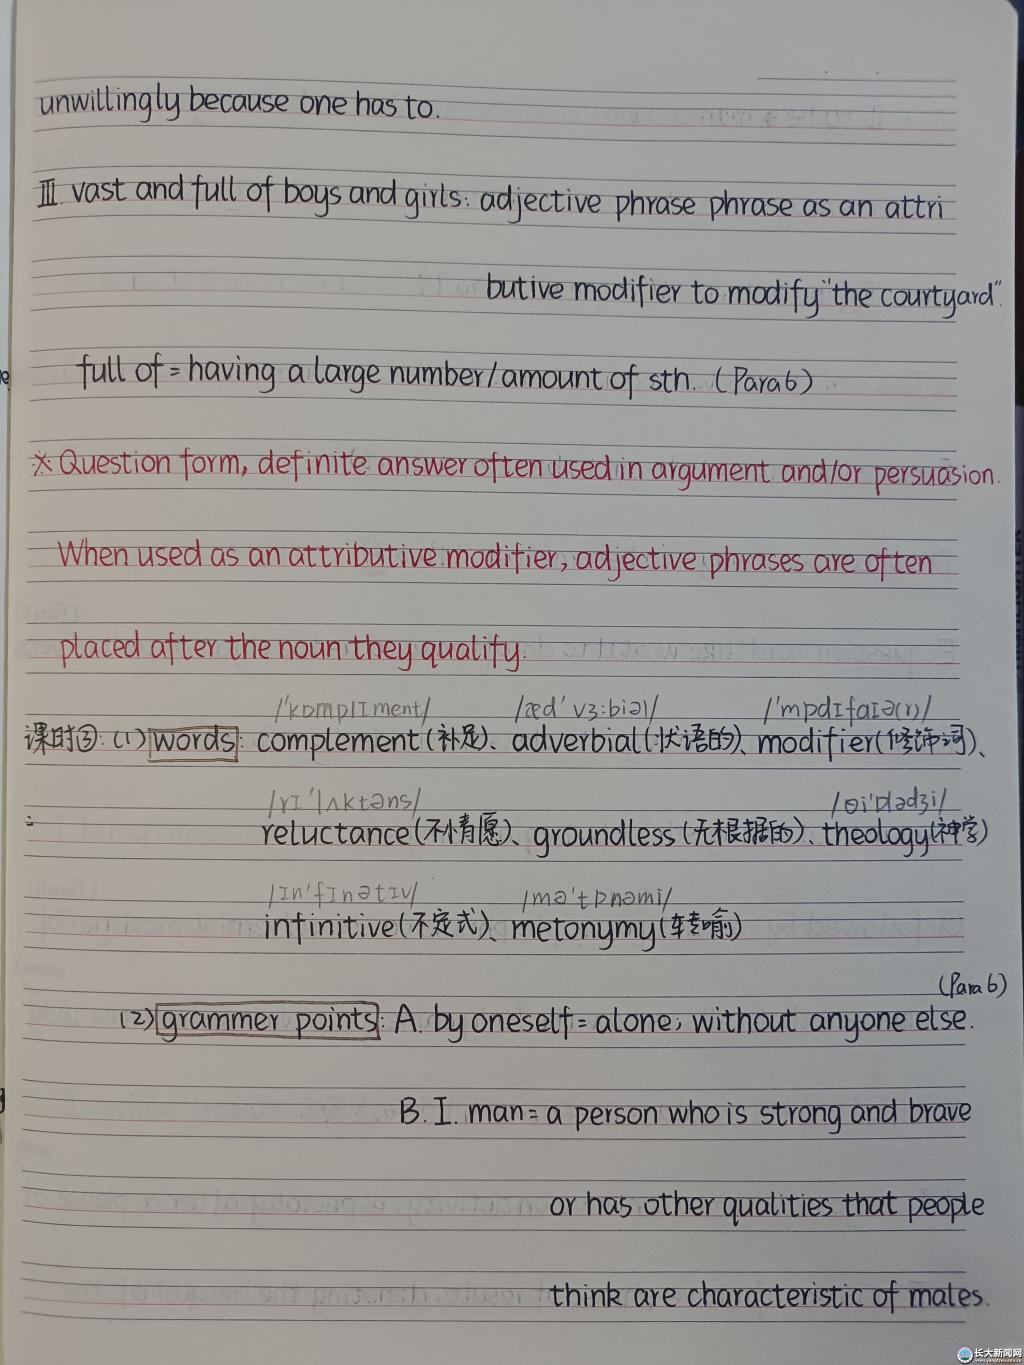 unwillingly because one has to.
Ⅲ. vast and full of boys and girls: adjective phrase phrase as an attri
butive modifier to modify "the courtyard".
full of = having a large number/amount of sth. (Para 6)
※ Question form, definite answer often used in argument and/or persuasion.
When used as an attributive modifier, adjective phrases are often
placed after the noun they qualify.
/'kɒmplɪment/ /æd'vɜ:biəl/ /'mɒdɪfaɪə(r)/
课时③: (1) words: complement(补足)、adverbial(状语的)、modifier(修饰词)、
/rɪ'lʌktəns/ /θi'ɒlədʒi/
reluctance(不情愿)、groundless(无根据的)、theology(神学)
/ɪn'fɪnətɪv/ /mə'tɒnəmi/
infinitive(不定式)、metonymy(转喻)
(Para 6)
(2) grammer points: A. by oneself = alone; without anyone else.
B. I. man = a person who is strong and brave
or has other qualities that people
think are characteristic of males.
长大新闻网